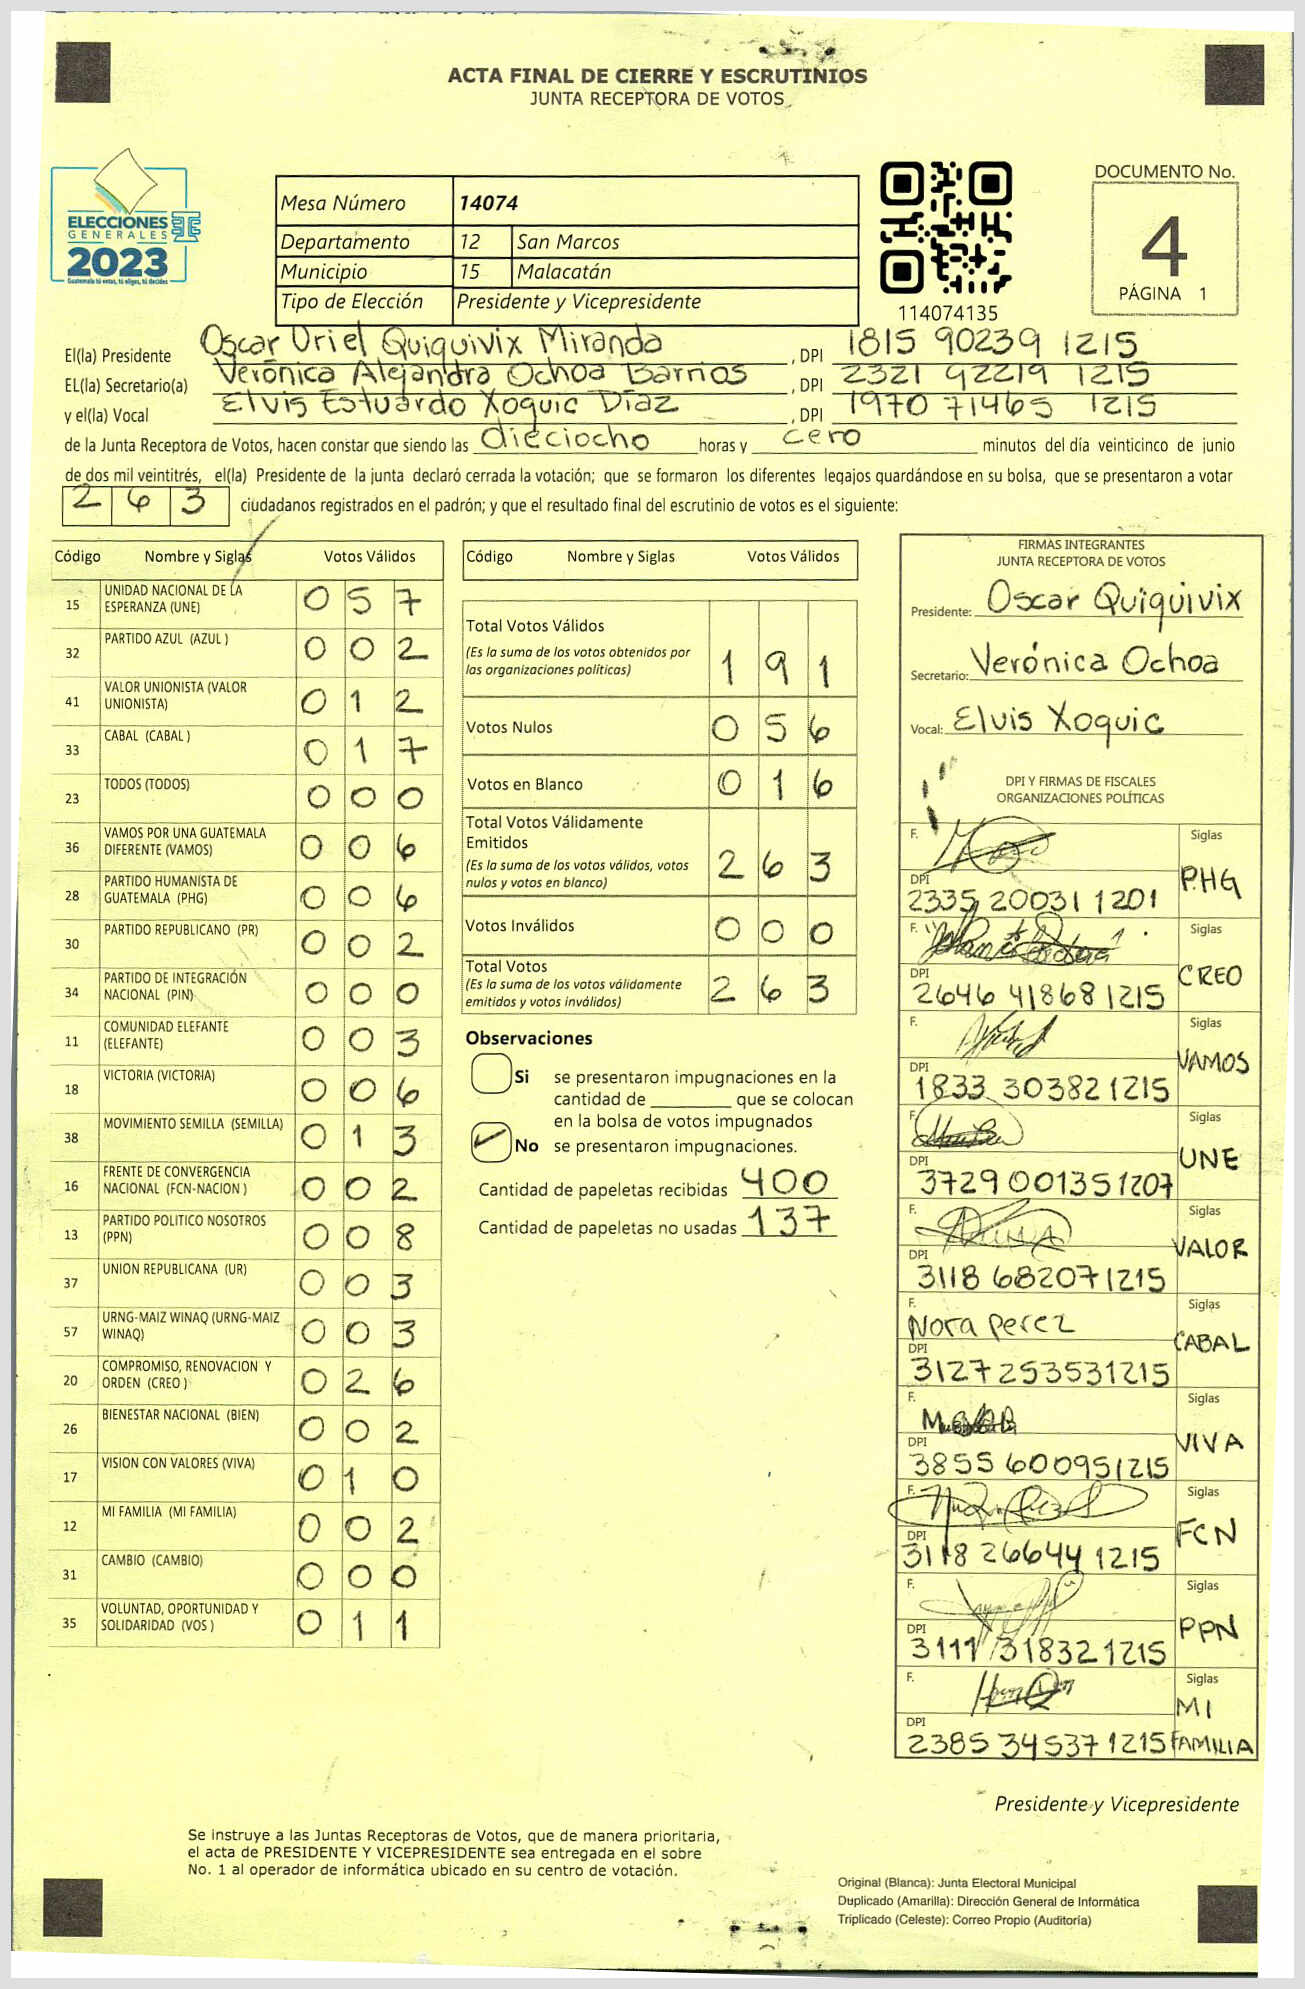 ACTA FINAL DE CIERRE Y ESCRUTINIOS
JUNTA RECEPTORA DE VOTOS
ELECCIONES
GENERALES
2023
Guatemala tú votas, tú eliges, tú decides
Mesa Número 14074
Departamento 12 San Marcos
Municipio 15 Malacatán
Tipo de Elección Presidente y Vicepresidente
114074135
DOCUMENTO No.
4
PÁGINA 1
El(la) Presidente Oscar Uriel Quiquivix Miranda , DPI 1815 90239 1215
EL(la) Secretario(a) Verónica Alejandra Ochoa Barrios , DPI 2321 92219 1215
y el(la) Vocal Elvis Estuardo Xoquic Díaz , DPI 1970 71465 1215
de la Junta Receptora de Votos, hacen constar que siendo las dieciocho horas y cero minutos del día veinticinco de junio
de dos mil veintitrés, el(la) Presidente de la junta declaró cerrada la votación; que se formaron los diferentes legajos guardándose en su bolsa, que se presentaron a votar
263 ciudadanos registrados en el padrón; y que el resultado final del escrutinio de votos es el siguiente:
Código Nombre y Siglas Votos Válidos
15 UNIDAD NACIONAL DE LA ESPERANZA (UNE) 057
32 PARTIDO AZUL (AZUL ) 002
41 VALOR UNIONISTA (VALOR UNIONISTA) 012
33 CABAL (CABAL ) 017
23 TODOS (TODOS) 000
36 VAMOS POR UNA GUATEMALA DIFERENTE (VAMOS) 006
28 PARTIDO HUMANISTA DE GUATEMALA (PHG) 006
30 PARTIDO REPUBLICANO (PR) 002
34 PARTIDO DE INTEGRACIÓN NACIONAL (PIN) 000
11 COMUNIDAD ELEFANTE (ELEFANTE) 003
18 VICTORIA (VICTORIA) 006
38 MOVIMIENTO SEMILLA (SEMILLA) 013
16 FRENTE DE CONVERGENCIA NACIONAL (FCN-NACION ) 002
13 PARTIDO POLITICO NOSOTROS (PPN) 008
37 UNION REPUBLICANA (UR) 003
57 URNG-MAIZ WINAQ (URNG-MAIZ WINAQ) 003
20 COMPROMISO, RENOVACION Y ORDEN (CREO ) 026
26 BIENESTAR NACIONAL (BIEN) 002
17 VISION CON VALORES (VIVA) 010
12 MI FAMILIA (MI FAMILIA) 002
31 CAMBIO (CAMBIO) 000
35 VOLUNTAD, OPORTUNIDAD Y SOLIDARIDAD (VOS ) 011
Código Nombre y Siglas Votos Válidos
Total Votos Válidos
(Es la suma de los votos obtenidos por
las organizaciones políticas) 191
Votos Nulos 056
Votos en Blanco 016
Total Votos Válidamente
Emitidos
(Es la suma de los votos válidos, votos
nulos y votos en blanco) 263
Votos Inválidos 000
Total Votos
(Es la suma de los votos válidamente
emitidos y votos inválidos) 263
Observaciones
Si se presentaron impugnaciones en la
cantidad de ________ que se colocan
en la bolsa de votos impugnados
No se presentaron impugnaciones.
Cantidad de papeletas recibidas 400
Cantidad de papeletas no usadas 137
FIRMAS INTEGRANTES
JUNTA RECEPTORA DE VOTOS
Presidente: Oscar Quiquivix
Secretario: Verónica Ochoa
Vocal: Elvis Xoquic
DPI Y FIRMAS DE FISCALES
ORGANIZACIONES POLÍTICAS
F. Siglas
DPI 2335 20031 1201 PHG
F. Siglas
DPI 2646 41868 1215 CREO
F. Siglas
DPI 1833 30382 1215 VAMOS
F. Siglas
DPI 3729 00135 1207 UNE
F. Siglas
DPI 3118 68207 1215 VALOR
F. Nora Perez Siglas
DPI 3127 25353 1215 CABAL
F. Siglas
DPI 3855 60095 1215 VIVA
F. Siglas
DPI 3118 26644 1215 FCN
F. Siglas
DPI 3111 31832 1215 PPN
F. Siglas
DPI 2385 34537 1215 MI FAMILIA
Presidente y Vicepresidente
Se instruye a las Juntas Receptoras de Votos, que de manera prioritaria,
el acta de PRESIDENTE Y VICEPRESIDENTE sea entregada en el sobre
No. 1 al operador de informática ubicado en su centro de votación.
Original (Blanca): Junta Electoral Municipal
Duplicado (Amarilla): Dirección General de Informática
Triplicado (Celeste): Correo Propio (Auditoría)